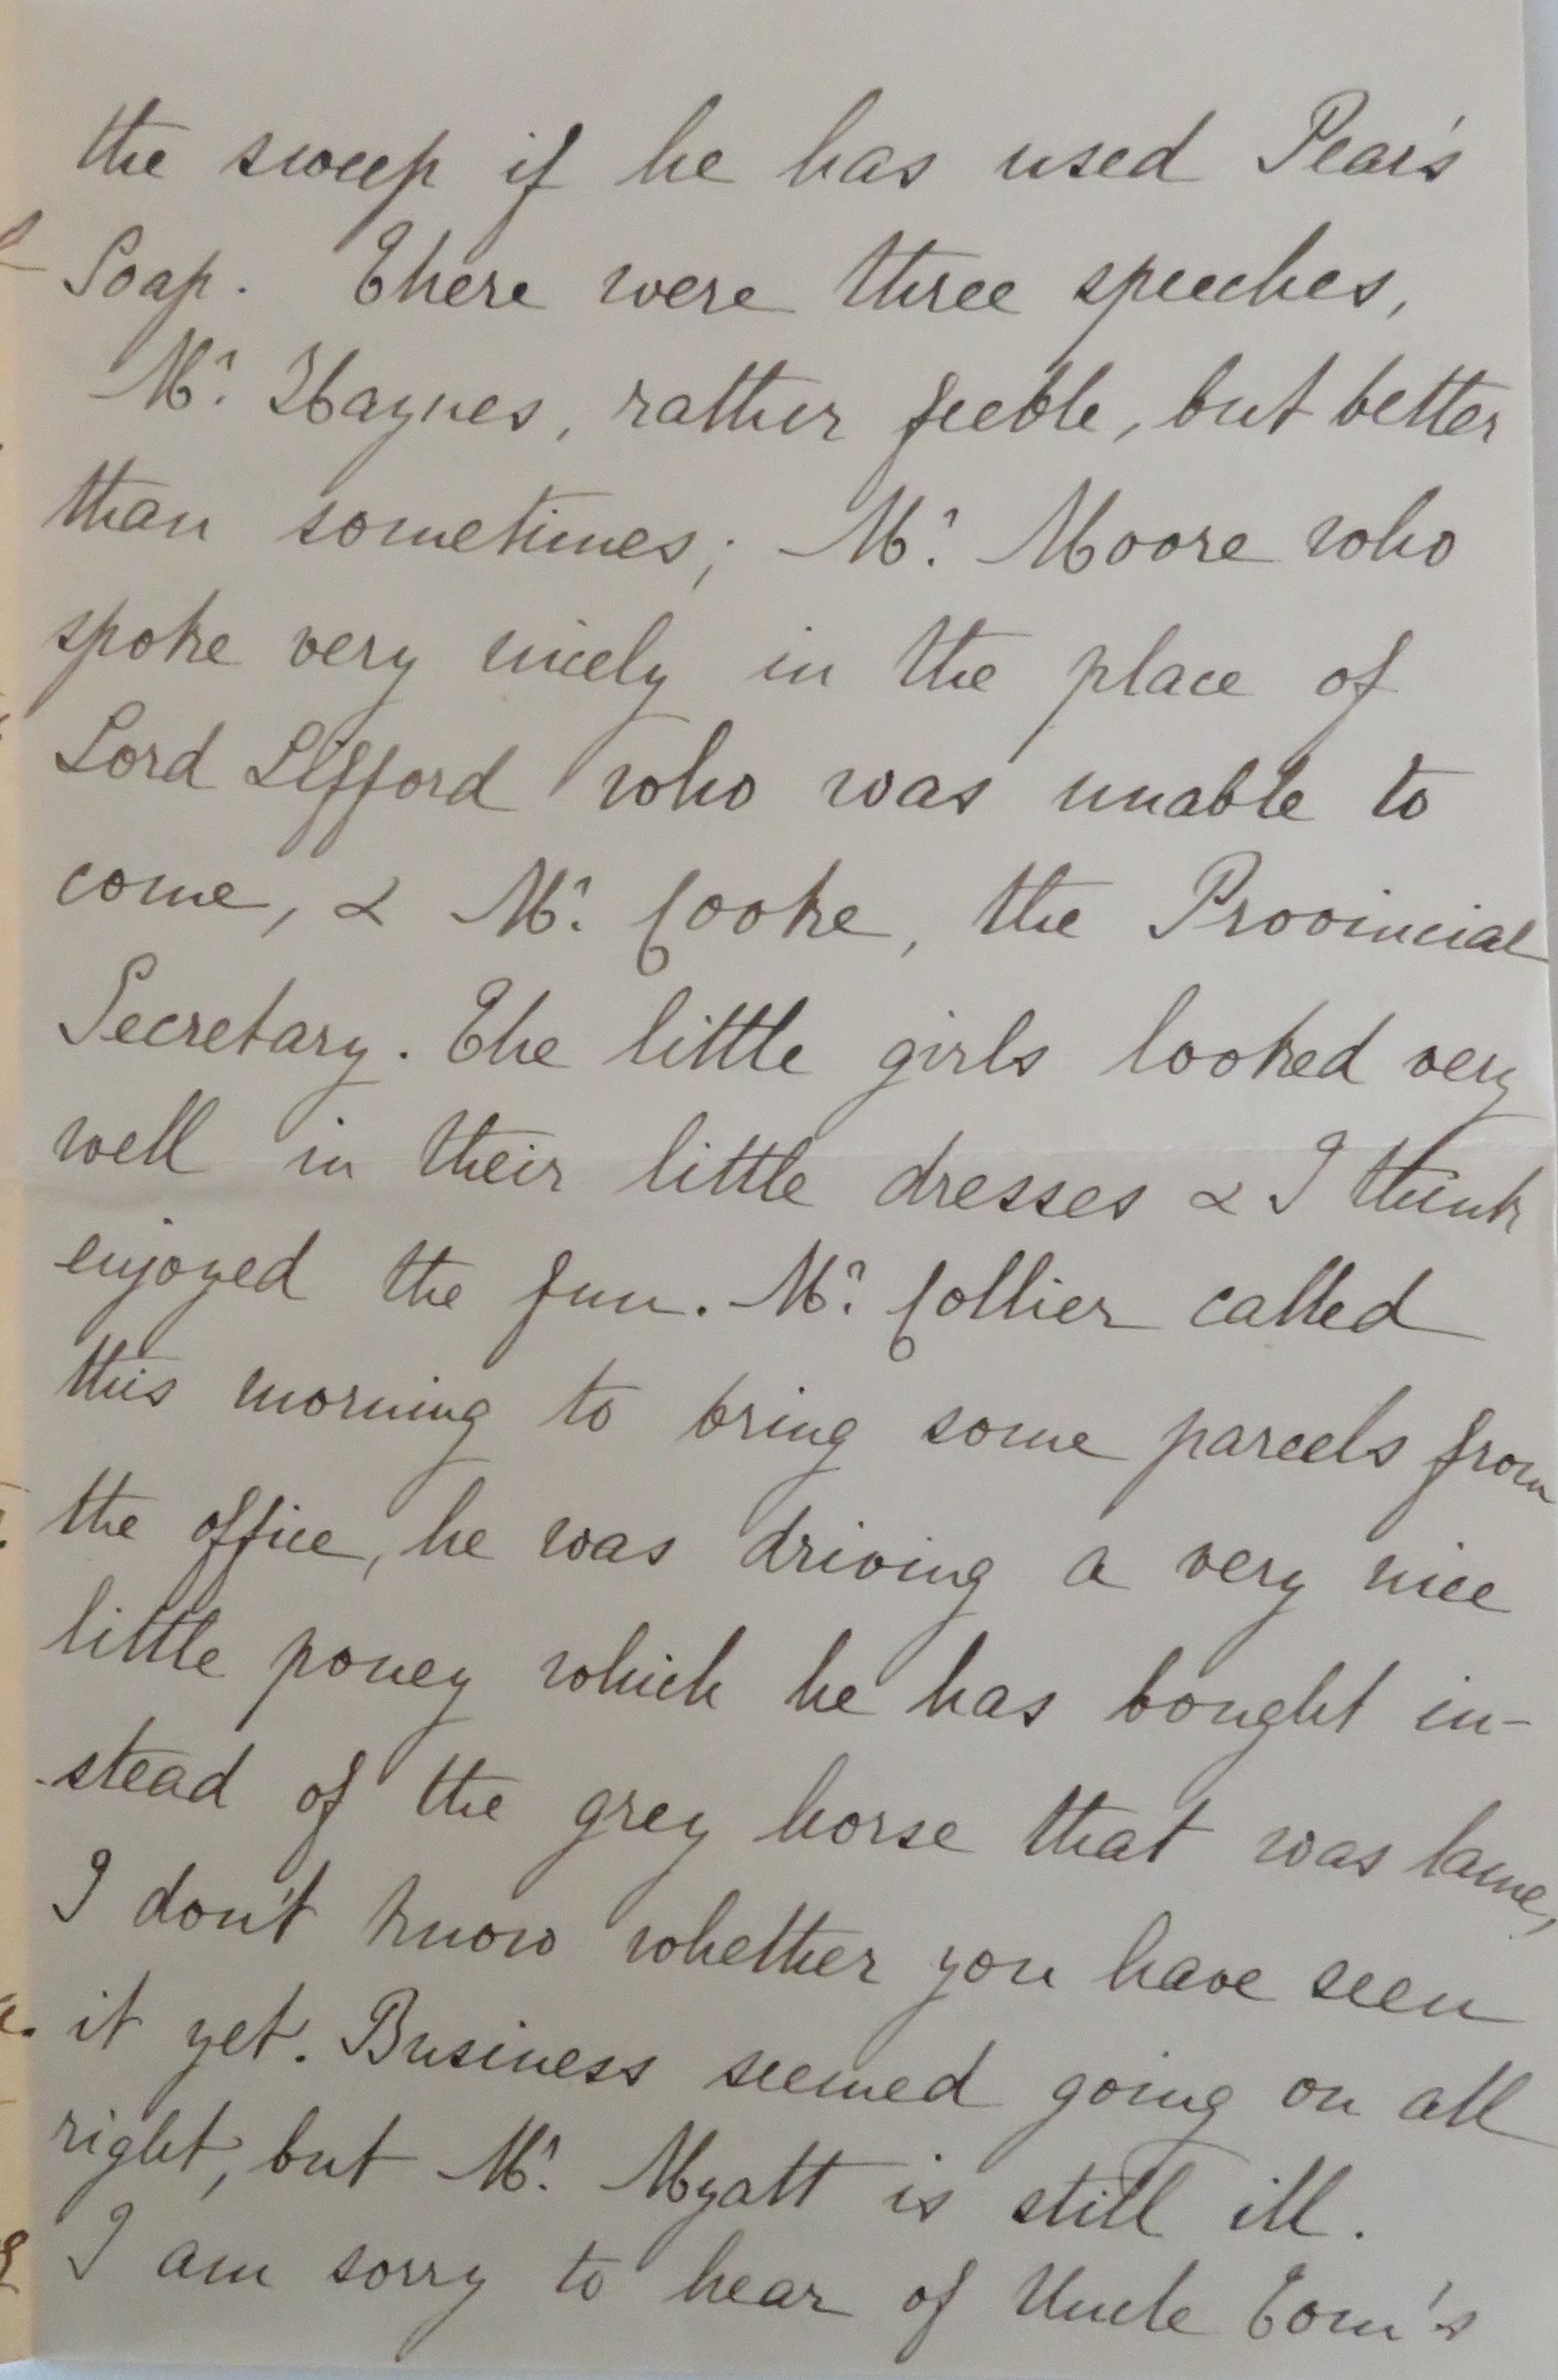 the sweep if he has used Pear's
Soap. There were three speeches,
Mr. Haynes, rather feeble, but better
than sometimes; Mr. Moore who
spoke very nicely in the place of
Lord Lifford who was unable to
come, & Mr. Cooke, the Provincial
Secretary. The little girls looked very
well in their little dresses & I think
enjoyed the fun. Mr. Collier called
this morning to bring some parcels from
the office, he was driving a very nice
little poney which he has bought in-
-stead of the grey horse that was lame,
I don't know whether you have seen
it yet. Business seemed going on all
right, but Mr. Myatt is still ill.
I am sorry to hear of Uncle Tom's